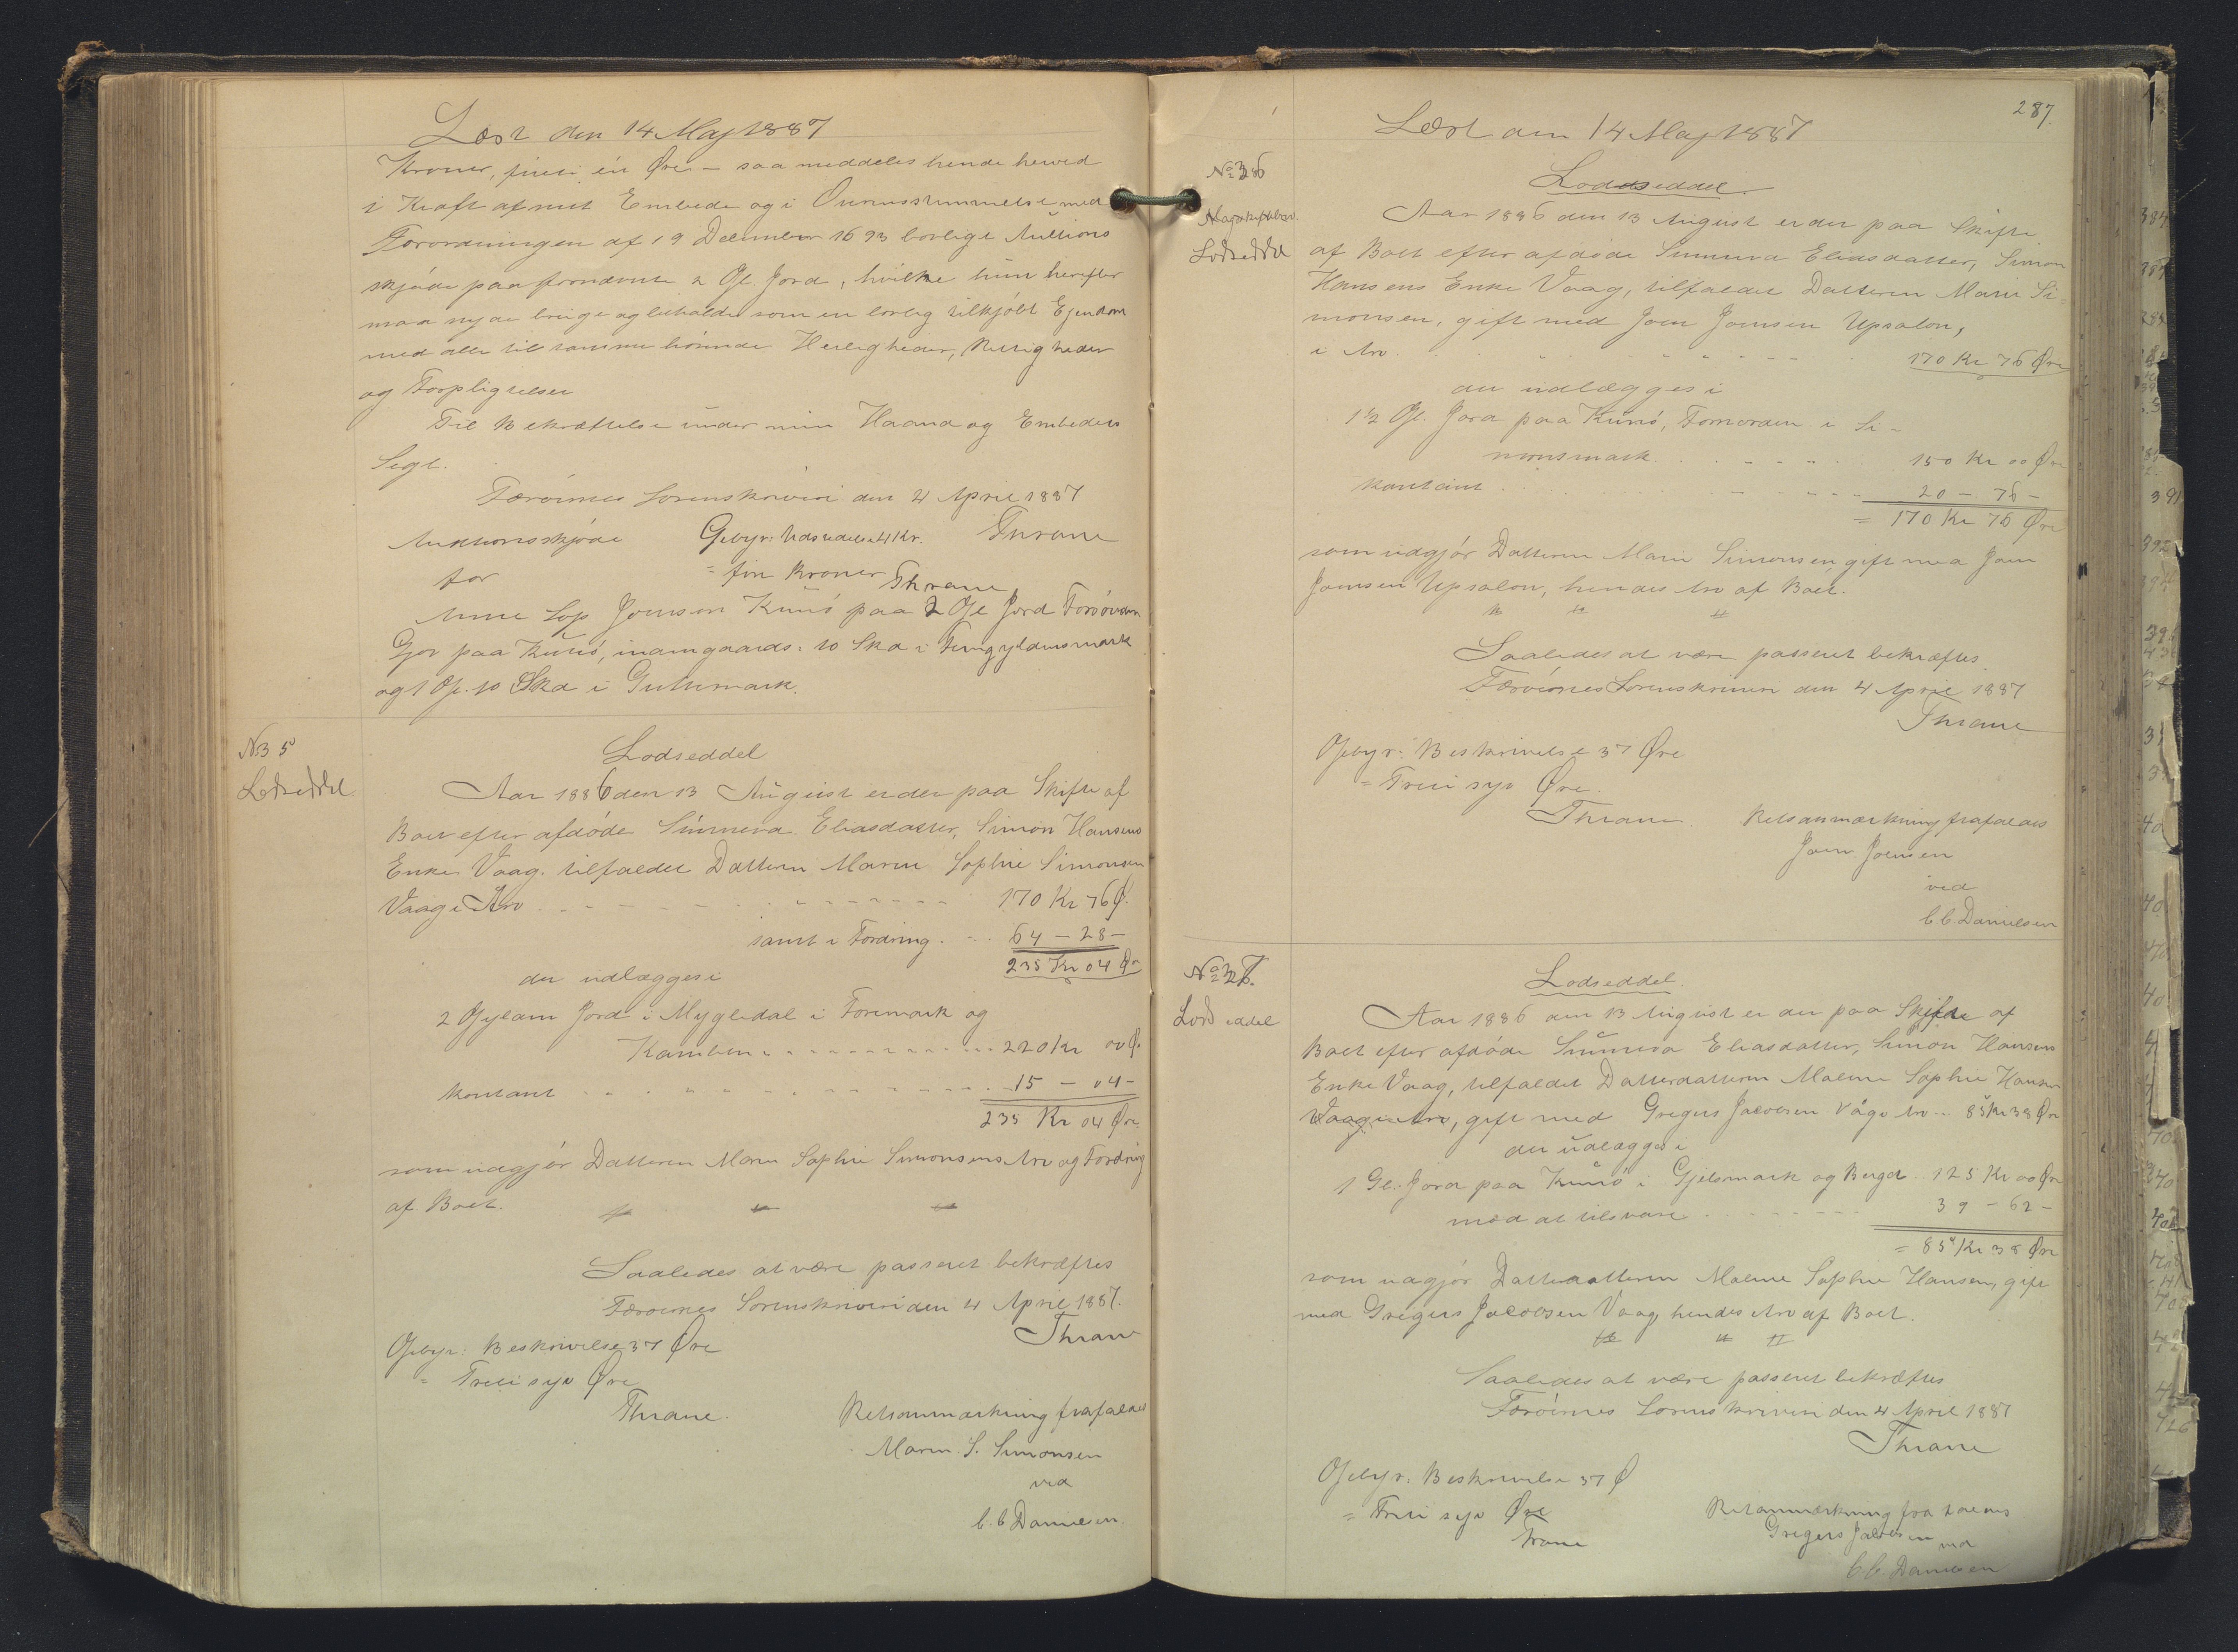 Læst den 14 Maj 1887
Kroner, fireti én Øre — saa meddeles hende herved
i Kraft af mit Embede og i Overensstemmelse med
Forordningen af 19 December 1693 lovligt Auctions
skjøde paa fornævnte 2 Gl. Jord, hvilke hun herefter
maa nyde bruge og beholde som en lovlig tilkjøbt Ejendom
med alle til samme hørende Herligheder, Rettigheder
og Forpligtelser
Til Bekræftelse under min Haand og Embedets
Segl.
Færøernes Sorenskriveri den 4 April 1887
Thrane
Auktionsskjøde
Gebyr: Udstedelse 4 Kr.
for
= fire Kroner Thrane
Anne Sop Joensen Kunø paa 2 Gl Jord
paa Kunø, inamgaards: 10 Ska i
og 1 Gl. 10 Ska i
N 35
Lodseddel
Lodseddel
Aar 1886 den 13 August er der paa Skifte af
Boet efter afdøde Sunneva Eliasdatter, Simon Hansens
Enke Vaag. tilfaldet Datteren Maren Sophie Simonsen
Vaag i Arv - - - 170 Kr 76 Ø.
samt i Fordring. - - 64 - 28 -
235 Kr 04 Ør
der udlægges i
2 Gylden Jord i Mygledal i Foremark og
Kamben - - - 220 Kr 00 Ø.
Kontant - - - 15 - 04 -
235 Kr 04 Øre
som udgjør Datteren Maren Sophie Simonsens Arv og Fordring
af Boet.
Saaledes at være passeret bekræftes
Færøernes Sorenskriveri den 4 April 1887.
Thrane
Gebyr: Beskrivelse 37 Øre
= Treti syv Øre
Thrane.
Retsanmærkning frafaldes
Maren S. Simonsen
ved
C. C. Danielsen.
287.
Læst den 14 Maj 1887
No 36
Lodseddel
Lodseddel.
Aar 1886 den 13 August er der paa Skifte
af Boet efter afdøde Sunneva Eliasdatter, Simon
Hansens Enke Vaag, tilfaldet Datteren Mari Si-
monsen, gift med Joen Joensen Upsalon,
i Arv - - - 170 Kr 76 Øre
der udlægges i
1½ Gl. Jord paa Kunø, i Si-
monsmark - - - 150 Kr 00 Øre
Kontant - - - 20 - 76 -
= 170 Kr 76 Øre
som udgjør Datteren Marie Simonsen gift med Joen
Joensen Upsalon, hendes Arv af Boet.
Saaledes at være passeret bekræftes
Færøernes Sorenskriveri den 4 April 1887
Thrane
Gebyr: Beskrivelse 37 Øre
= Treti syv Øre.
Thrane.
Retsanmærkning frafaldes
Joen Joensen
ved
C. C. Danielsen
No 37.
Lodseddel
Lodseddel.
Aar 1886 den 13 August er der paa Skifte af
Boet efter afdøde Sunneva Eliasdatter, Simon Hansens
Enke Vaag, tilfaldet Datterdatteren Malene Sophie Hansen
Vaag i Arv, gift med Gregers Jacobsen Våg i Arv - - 85 Kr 38 Øre
der udlægges i
1 Gl. Jord paa Kunø i Gjelsmark og 125 Kr 00 Øre
mod at tilsvare - - - 39 - 62 -
= 85 Kr 38 Øre
som udgjør Datterdatteren Malene Sophie Hansen, gift
med Gregers Jacobsen Vaag, hendes Arv af Boet.
Saaledes at være passeret bekræftes
Færøernes Sorenskriveri den 4 April 1887
Thrane
Gebyr: Beskrivelse 37 Ø
= Treti syv Øre
Trane
Retsanmærkning frafaldes
Gregers Jacobsen
ved
C. C. Danielsen